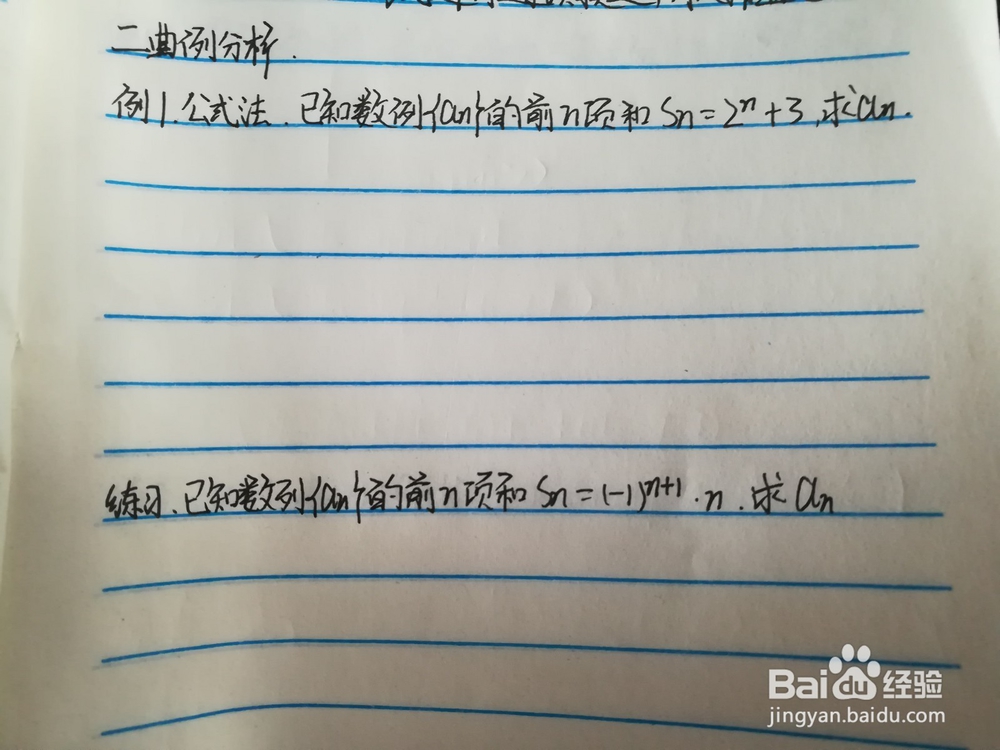 二曲例分析.
例1.公式法.已知数列{an}的前n项和Sn=2ⁿ+3,求an.
练习.已知数列{an}的前n项和Sn=(-1)ⁿ⁺¹·n.求an
Baidu经验
jingyan.baidu.com